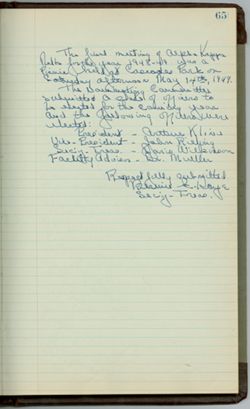 65
The final meeting of Alpha Kappa
Delta for the year 1948-49 was a
Picnic held at Cascades Park on
Saturday afternoon May 14th, 1949.
The Nominating Committee
submitted a slate of officers to
be elected for the coming year
and the following officers were
elected:
President - Arthur Kline
Vice-President - John
Sec'y-Treas. - Doris Wilkerson
Faculty Advisor - Dr. Mueller
Respectfully submitted
Sec'y-Treas.